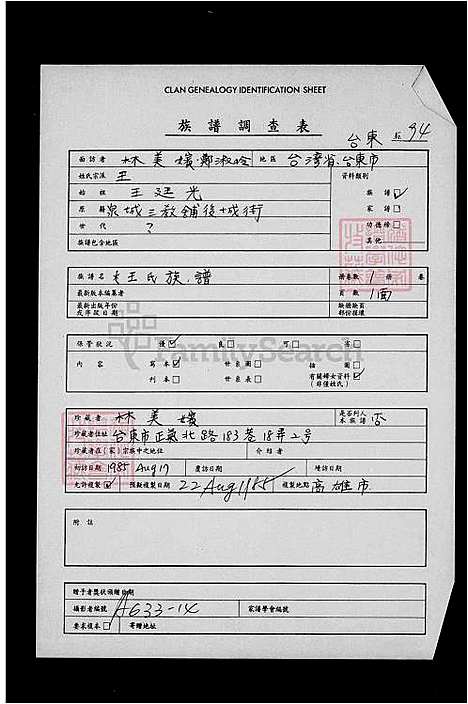 CLAN GENEALOGY IDENTIFICATION SHEET
族譜調查表
台東 94
面訪者 林美媛·鄭淑玲 地區 台灣省·台東市
姓氏宗派 王 資料類別
始祖 王廷光 族譜
原籍 泉城三教舖後十成街 家譜
世代 ? 功德榜
族譜包含地區 其他
族譜名 王氏族譜 總卷數 1 卷
最新版本編纂者 頁數 1面
最新出版年份
或序跋日期
保管狀況 優 良 可 劣
內容 寫本 世系圖 插圖
刊本 世系表 有關婦女資料
(非僅姓氏)
FamilySearch
珍藏者 林美媛 是否列入
本族譜 否
珍藏者住址 台東市正氣北路183巷18弄2号
珍藏者在(家)宗族中之地位 介紹者
初訪日期 1985 Aug 19 應訪日期 續訪日期
允許複製 預擬複製日期 22 Aug 1985 複製地點 高雄市
附註
贈予者獎狀頒贈日期
攝影者編號 A633-14 家譜學會編號
要求複本 寄贈地址